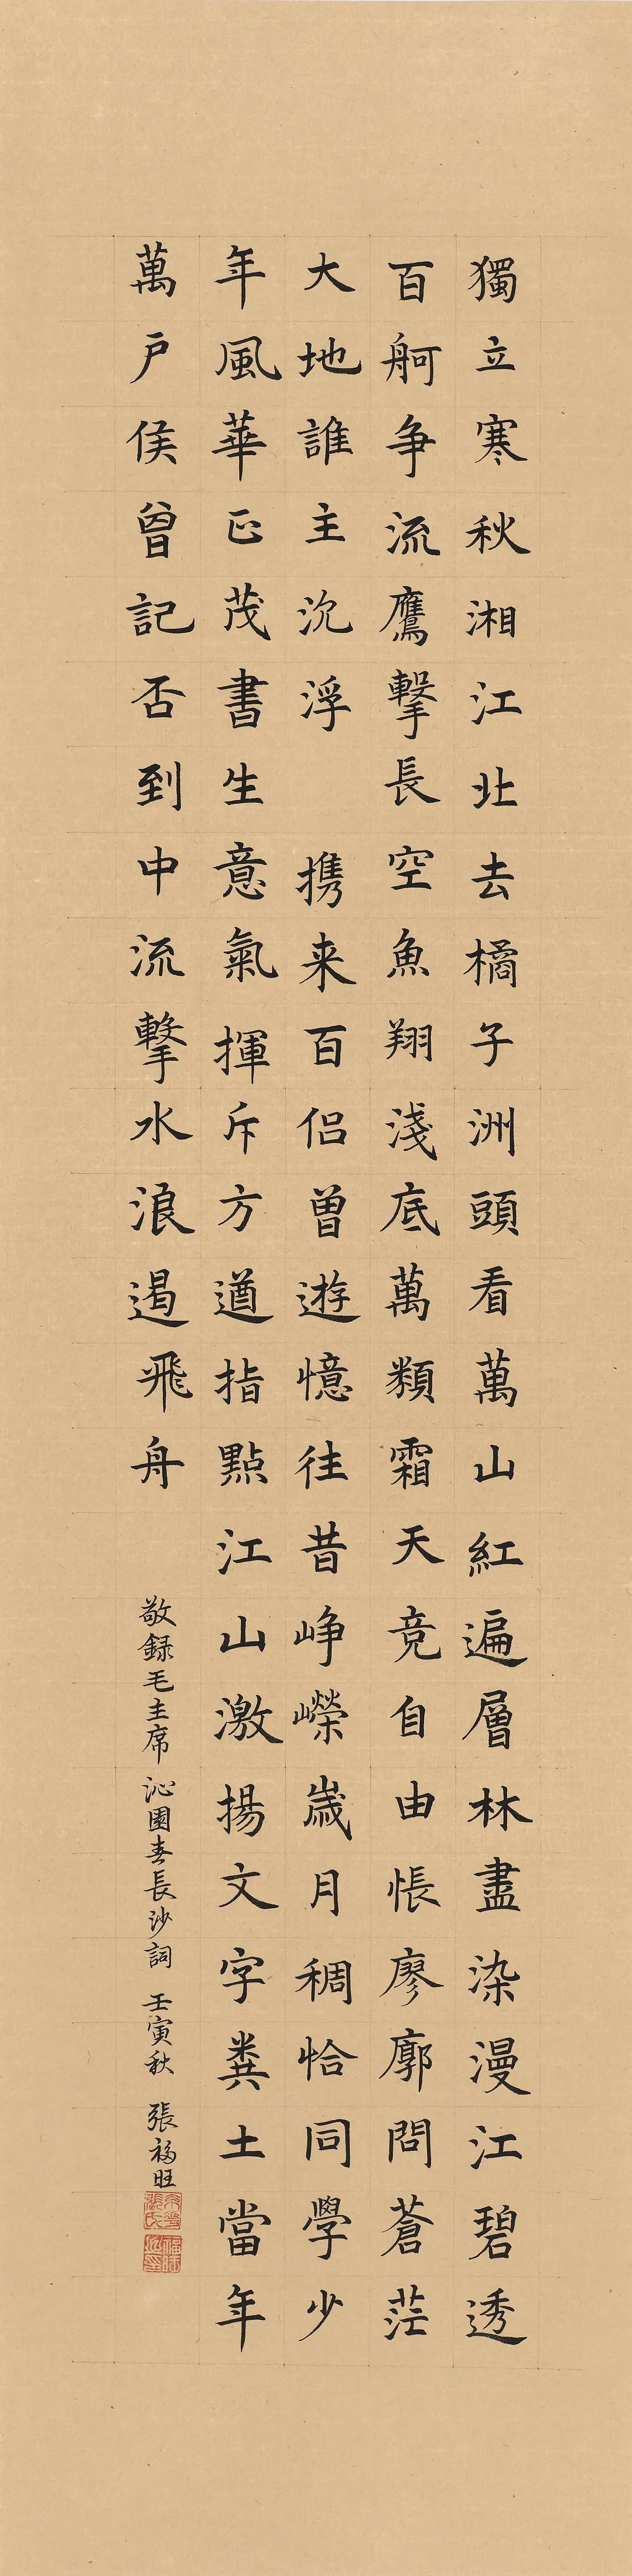 獨立寒秋湘江北去橘子洲頭看萬山紅遍層林盡染漫江碧透
百舸争流鷹擊長空魚翔淺底萬類霜天竞自由悵廖廓問蒼茫
大地誰主沉浮 携来百侣曾遊憶往昔峥嶸歲月稠恰同學少
年風華正茂書生意氣揮斥方遒指點江山激揚文字糞土當年
萬户侯曾記否到中流擊水浪遏飛舟
敬録毛主席沁園春長沙詞 壬寅秋 張福旺